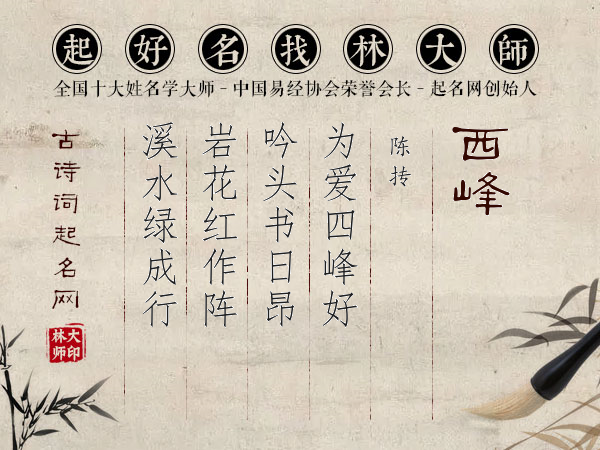 起好名找林大師
全国十大姓名学大师－中国易经协会荣誉会长－起名网创始人
西峰
陈抟
为爱四峰好
吟头书日昂
岩花红作阵
溪水绿成行
古诗词起名网
大印
林师